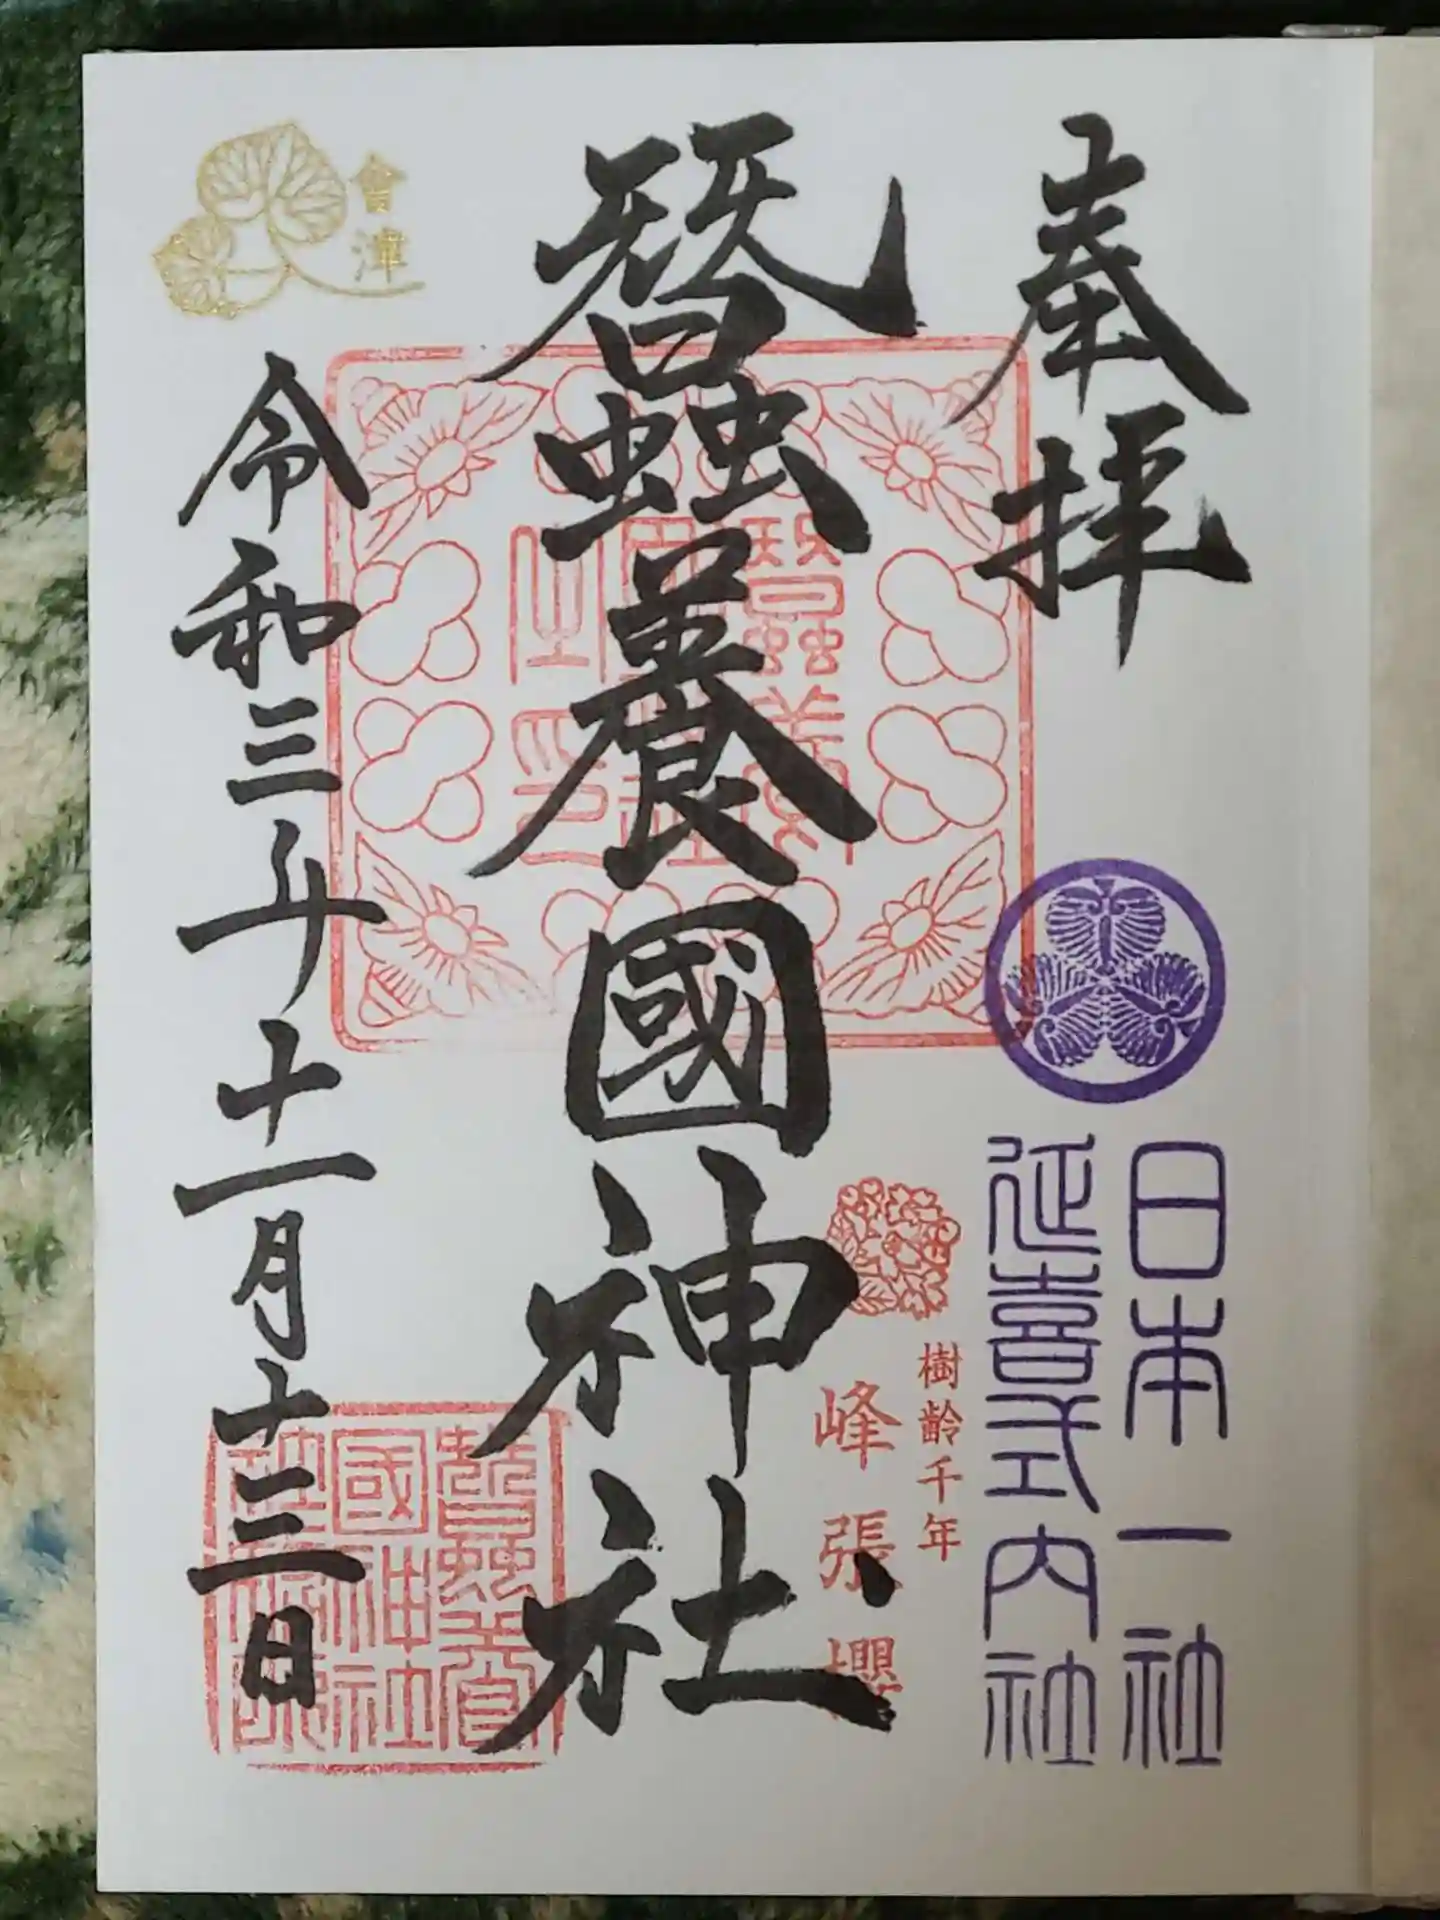 奉拝
日本一社
延喜式内社
樹齡千年
峰張櫻
蠶養國神社
會津
令和三年十一月十三日